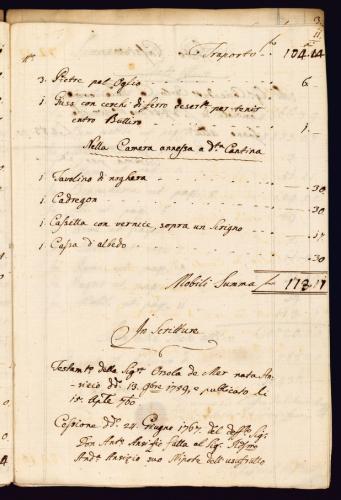 3
11
Nº. Traporto £ 104.14
3. Pietre pal Oglio 6.
1. Fusa con cerchi di ferro deserta per tenir
entro Butiro 1.
Nella Camera annessa a da. Cantina
1 Tavolino di noghera 30
1 Cadregon 30
1 Cassetta con vernice, sopra un Scrigno 17
1 Cassa d'albedo 30
Mobili Summa £ 17
In Scritture
Testamto. della Sigra. Orsola de Mer nata An-
rizio dd. 13. 9bre 1759, e publicato li
15. Aple 760
Cessione dd. 24. Giugno 1767. del Sigr.
Don Anto. fatta al Sig.
Andr. Anrizio suo Nipote dell'usufrutto